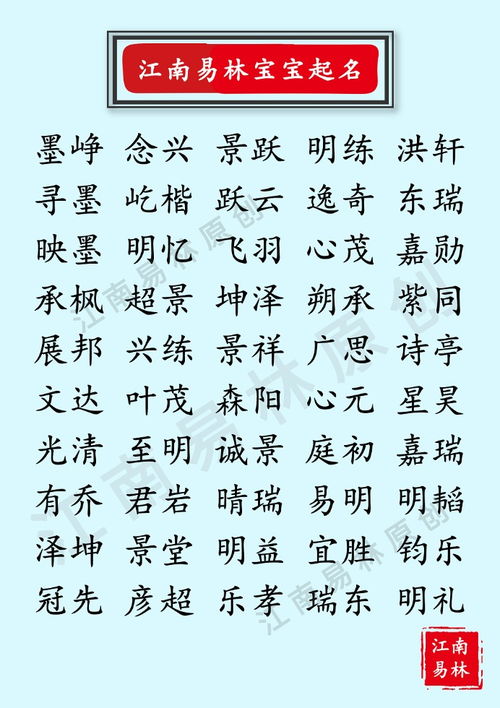 江南易林宝宝起名
墨峥 念兴 景跃 明练 洪轩
寻墨 屹楷 跃云 逸奇 东瑞
映墨 明忆 飞羽 心茂 嘉勋
承枫 超景 坤泽 朔承 紫同
展邦 兴练 景祥 广思 诗亭
文达 叶茂 森阳 心元 星昊
光清 至明 诚景 庭初 嘉瑞
有乔 君岩 晴瑞 易明 明韬
泽坤 景堂 明益 宜胜 钧乐
冠先 彦超 乐孝 瑞东 明礼
江南易林原创
江南易林原创
江南易林原创
江南
易林